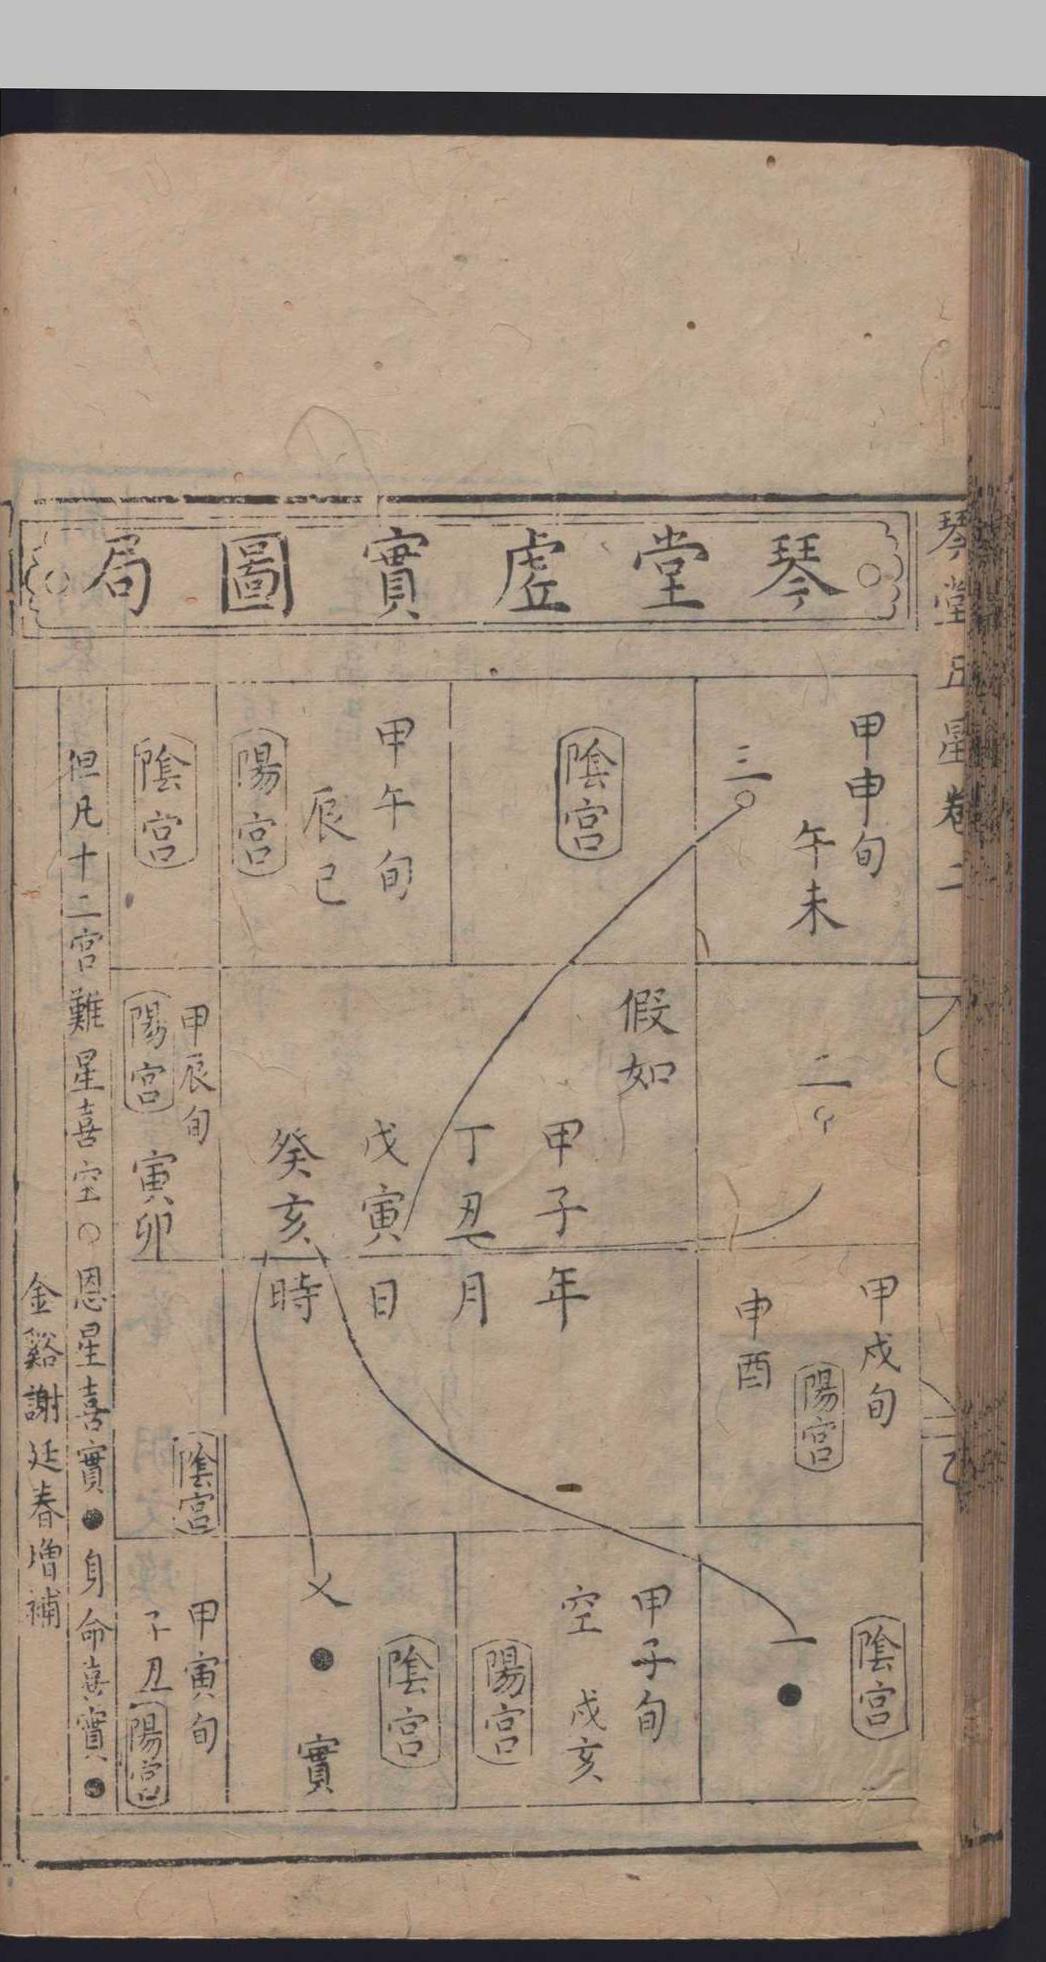 琴堂五星卷二
琴堂虛實圖局
甲申旬
午未
三○
陰宮
甲午旬
辰巳
陽宮
陰宮
二
假如
甲子年
丁丑月
戊寅日
癸亥時
甲辰旬
陽宮
寅卯
甲戌旬
陽宮
申酉
陰宮
陰宮
一●
甲子旬
空 戌亥
陽宮
陰宮
乂●實
甲寅旬
子丑
陽宮
但凡十二宮難星喜空○恩星喜實●身命喜實●
金谿謝廷春增補